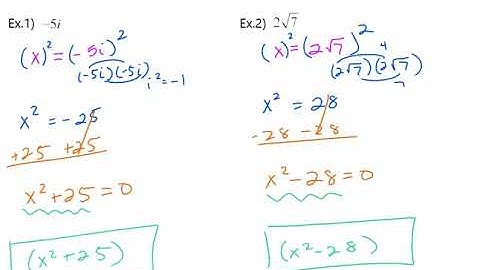 Ex.1) -5i
(x)² = (-5i)²
(-5i)(-5i)
i² = -1
x² = -25
+25 +25
x² + 25 = 0
(x² + 25)
Ex.2) 2√7
(x)² = (2√7)²
4
(2√7)(2√7)
7
x² = 28
-28 -28
x² - 28 = 0
(x² - 28)